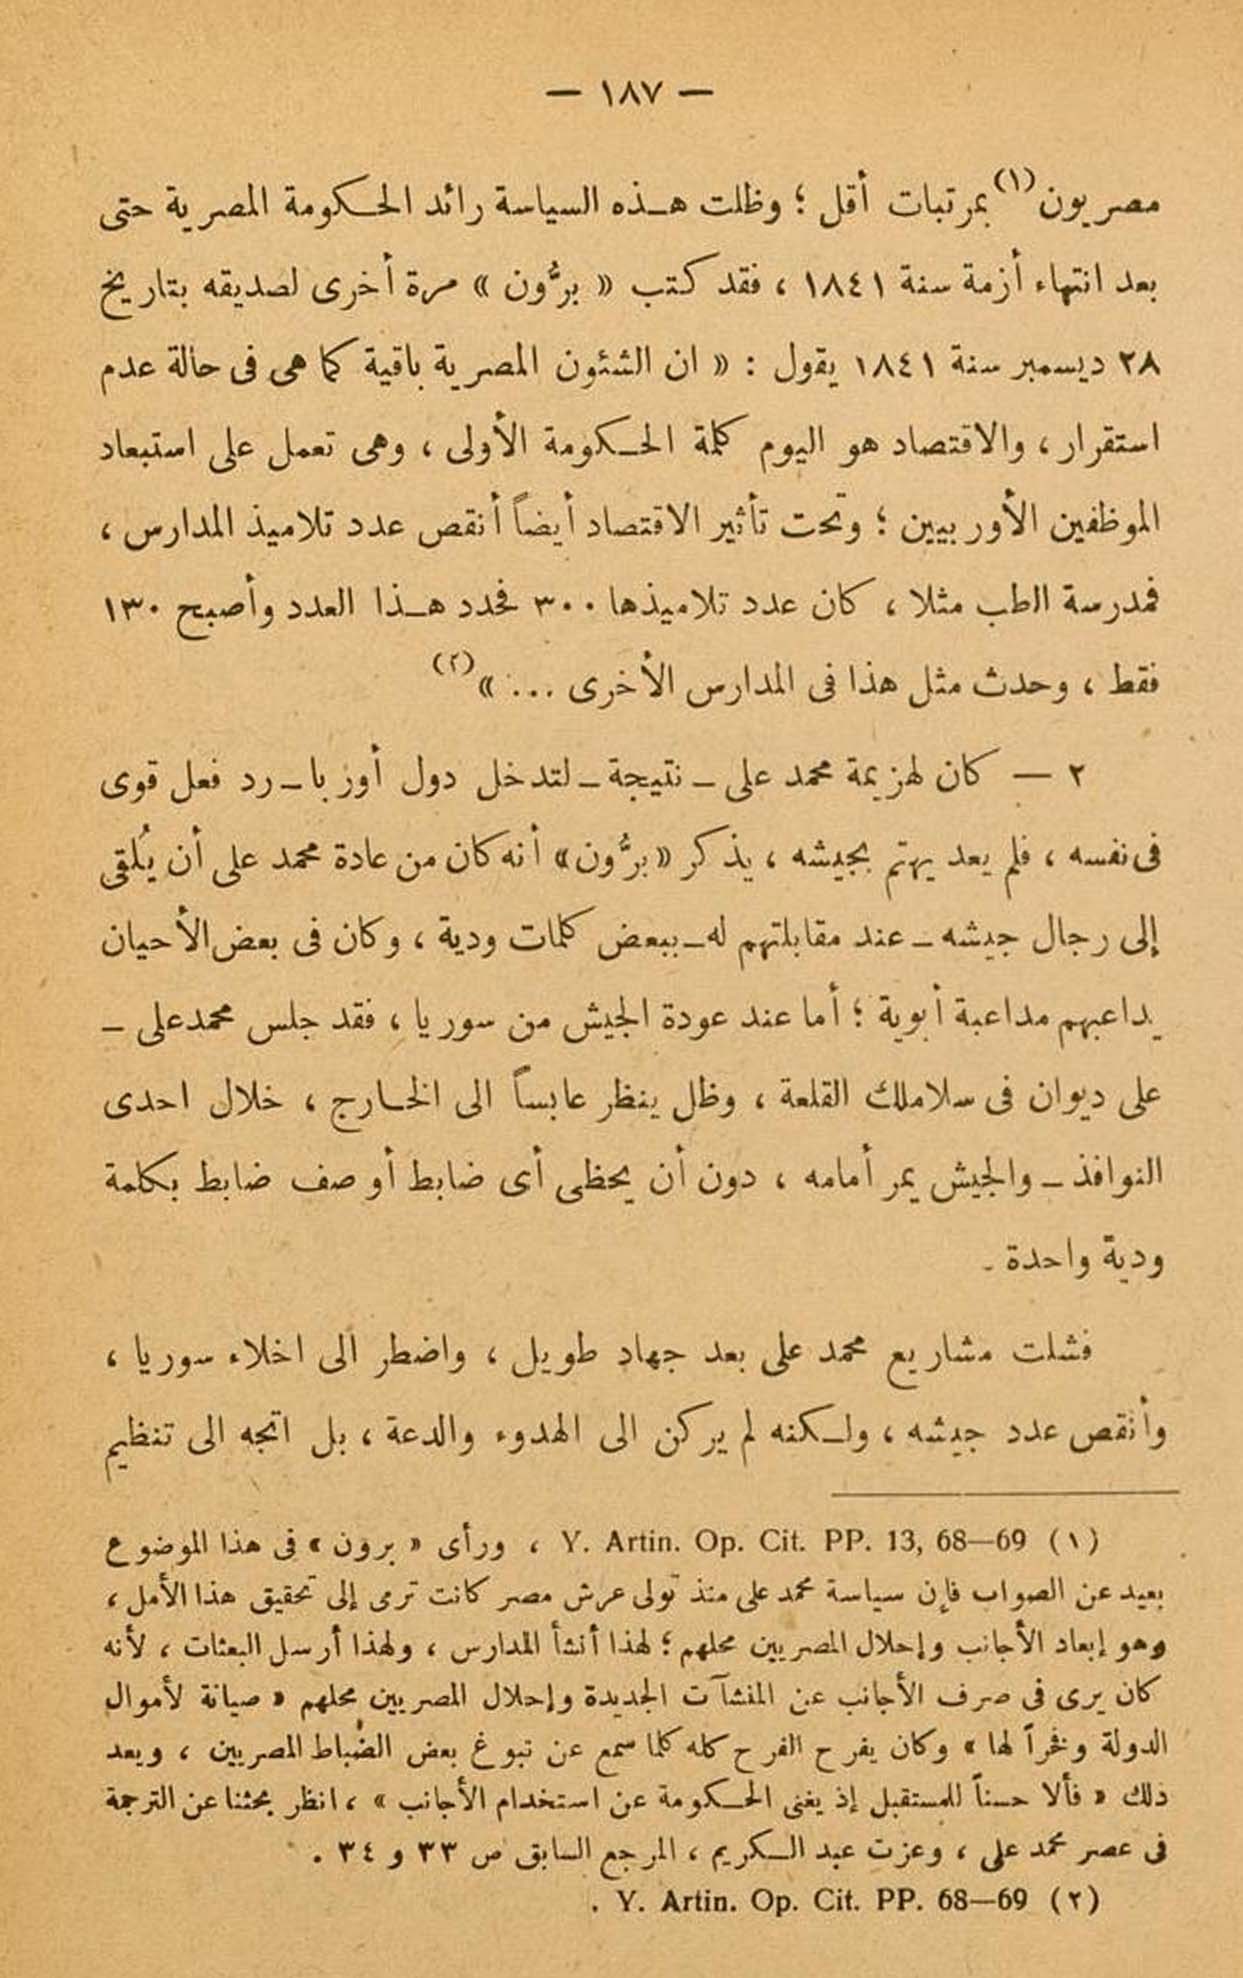 — ١٨٧ —
مصريون(١) بمرتبات أقل ؛ وظلت هذه السياسة رائد الحكومة المصرية حتى
بعد انتهاء أزمة سنة ١٨٤١ ، فقد كتب « برُّون » مرة أخرى لصديقه بتاريخ
٢٨ ديسمبر سنة ١٨٤١ يقول : « ان الشئون المصرية باقية كما هى فى حالة عدم
استقرار ، والاقتصاد هو اليوم كلمة الحكومة الأولى ، وهى تعمل على استبعاد
الموظفين الأوربيين ؛ وتحت تأثير الاقتصاد أيضاً أنقص عدد تلاميذ المدارس ،
فمدرسة الطب مثلا ، كان عدد تلاميذها ٣٠٠ فحدد هذا العدد وأصبح ١٣٠
فقط ، وحدث مثل هذا فى المدارس الأخرى ... »(٢)
٢ — كان لهزيمة محمد على – نتيجة – لتدخل دول أوربا – رد فعل قوى
فى نفسه ، فلم يعد يهتم بجيشه ، يذكر « برُّون » أنه كان من عادة محمد على أن يُلقى
إلى رجال جيشه – عند مقابلتهم له – ببعض كلمات ودية ، وكان فى بعض الأحيان
يداعبهم مداعبة أبوية ؛ أما عند عودة الجيش من سوريا ، فقد جلس محمد على –
على ديوان فى سلاملك القلعة ، وظل ينظر عابساً الى الخارج ، خلال احدى
النوافذ – والجيش يمر أمامه ، دون أن يحظى أى ضابط أو صف ضابط بكلمة
ودية واحدة .
فشلت مشاريع محمد على بعد جهاد طويل ، واضطر الى اخلاء سوريا ،
وأنقص عدد جيشه ، ولكنه لم يركن الى الهدوء والدعة ، بل اتجه الى تنظيم
(١) Y. Artin. Op. Cit. PP. 13, 68—69 ، ورأى « برون » فى هذا الموضوع
بعيد عن الصواب فإن سياسة محمد على منذ تولى عرش مصر كانت ترمى إلى تحقيق هذا الأمل ،
وهو إبعاد الأجانب وإحلال المصريين محلهم ؛ لهذا أنشأ المدارس ، ولهذا أرسل البعثات ، لأنه
كان يرى فى صرف الأجانب عن المنشآت الجديدة وإحلال المصريين محلهم « صيانة لأموال
الدولة وفخراً لها » وكان يفرح الفرح كله كلما سمع عن نبوغ بعض الضُباط المصريين ، ويعد
ذلك « فألا حسناً للمستقبل إذ يغنى الحكومة عن استخدام الأجانب » ، انظر بحثنا عن الترجمة
فى عصر محمد على ، وعزت عبد الكريم ، المرجع السابق ص ٣٣ و ٣٤ .
(٢) Y. Artin. Op. Cit. PP. 68—69 .